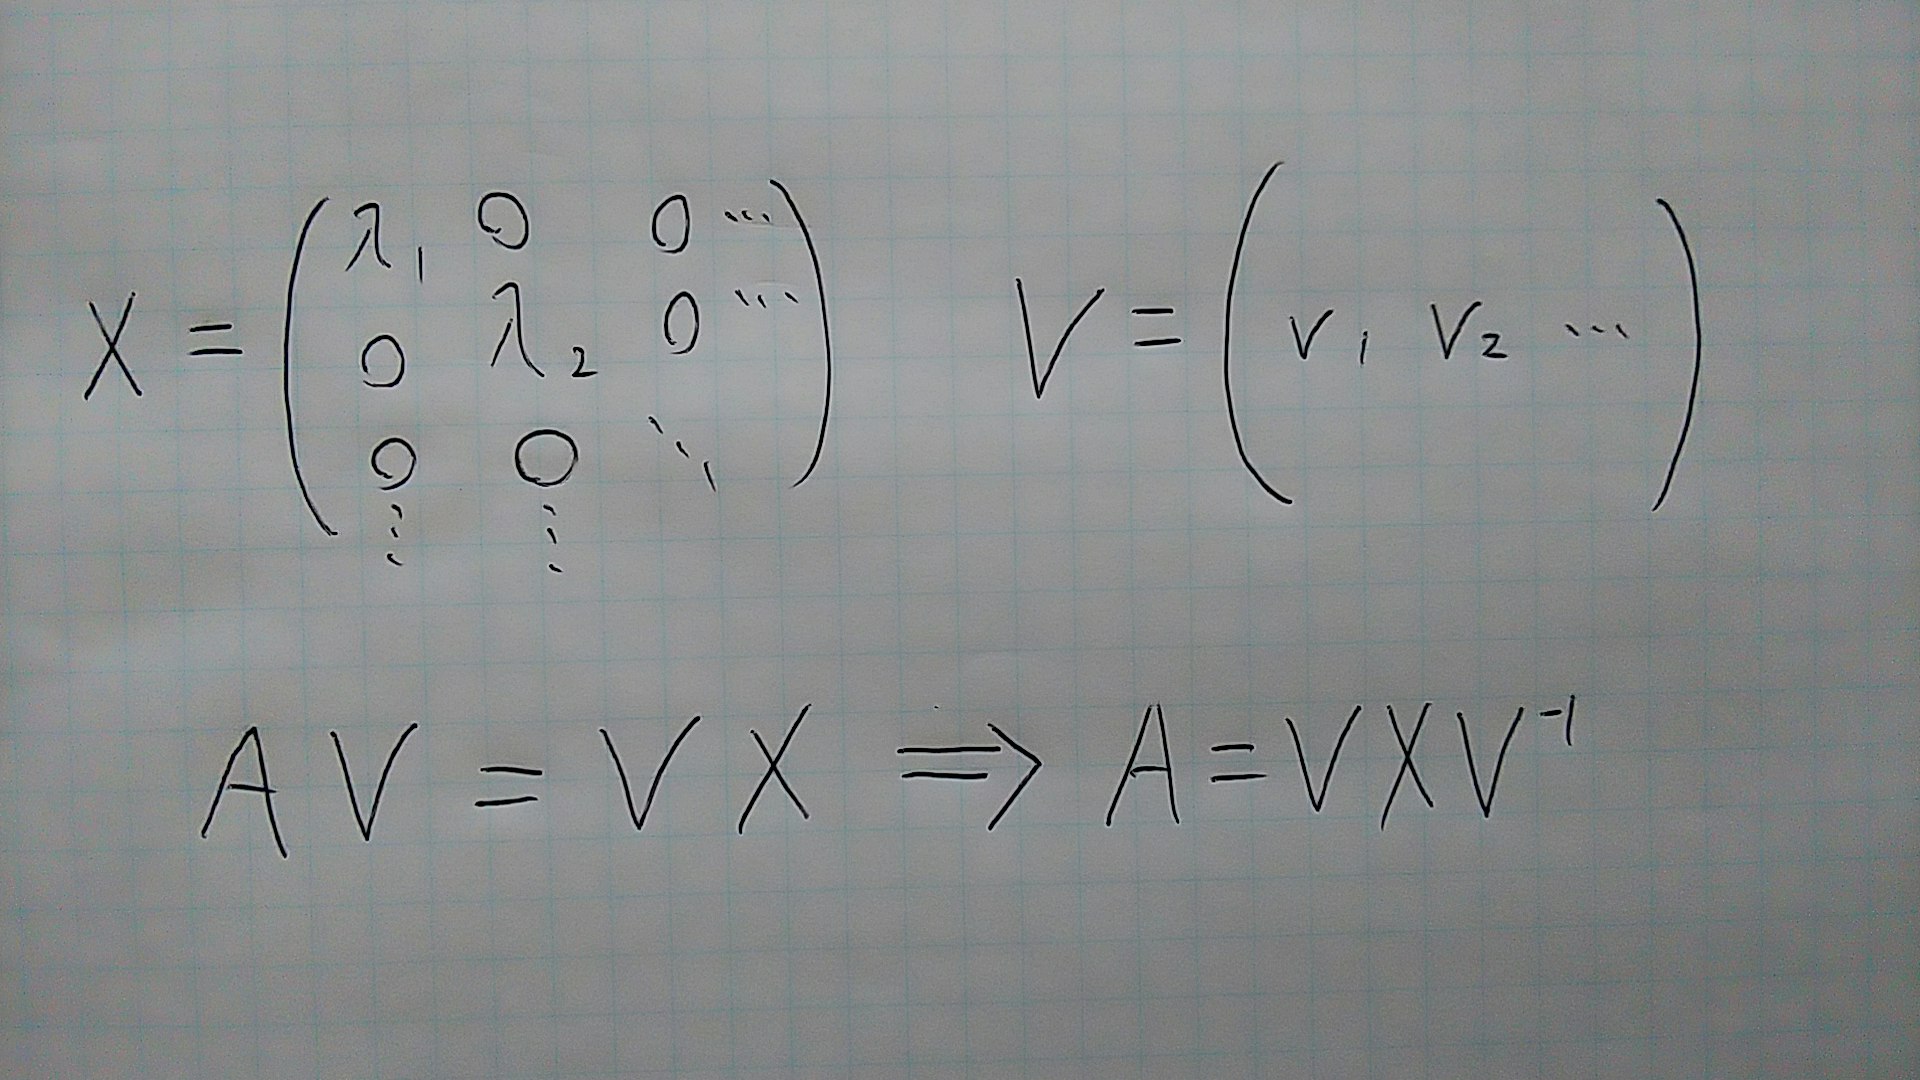 X = ( λ₁ 0 0 ⋯ 
0 λ₂ 0 ⋯ 
0 0 ⋱ 
⋮ ⋮ ) 
V = ( v₁ v₂ ⋯ )
AV = VX ⟹ A = VXV⁻¹